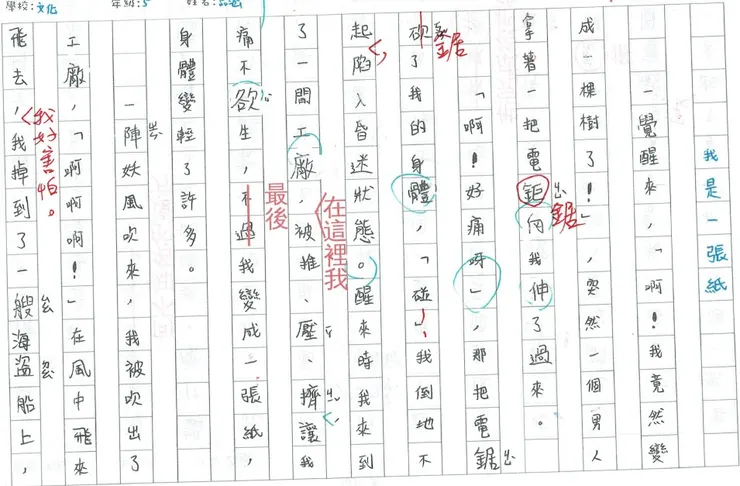 學校:文化 年級:5 姓名:
我是一張紙
一覺醒來,「啊!我竟然變
成一棵樹了!」,突然一個男人
拿著一把電鉅向我伸了過來。
鋸
「啊!好痛呀」,那把電鋸
砍了我的身體,「碰」!我倒地不
鋸
起,陷入昏迷狀態。醒來時我來到
在這裡我
了一間工廠,被推、壓、擠讓我
痛不欲生,不過我變成一張紙,
最後
身體變輕了許多。
一陣妖風吹來,我被吹出了
工廠,「啊啊啊!」在風中飛來
飛去,我掉到了一艘海盜船上,
我好害怕。